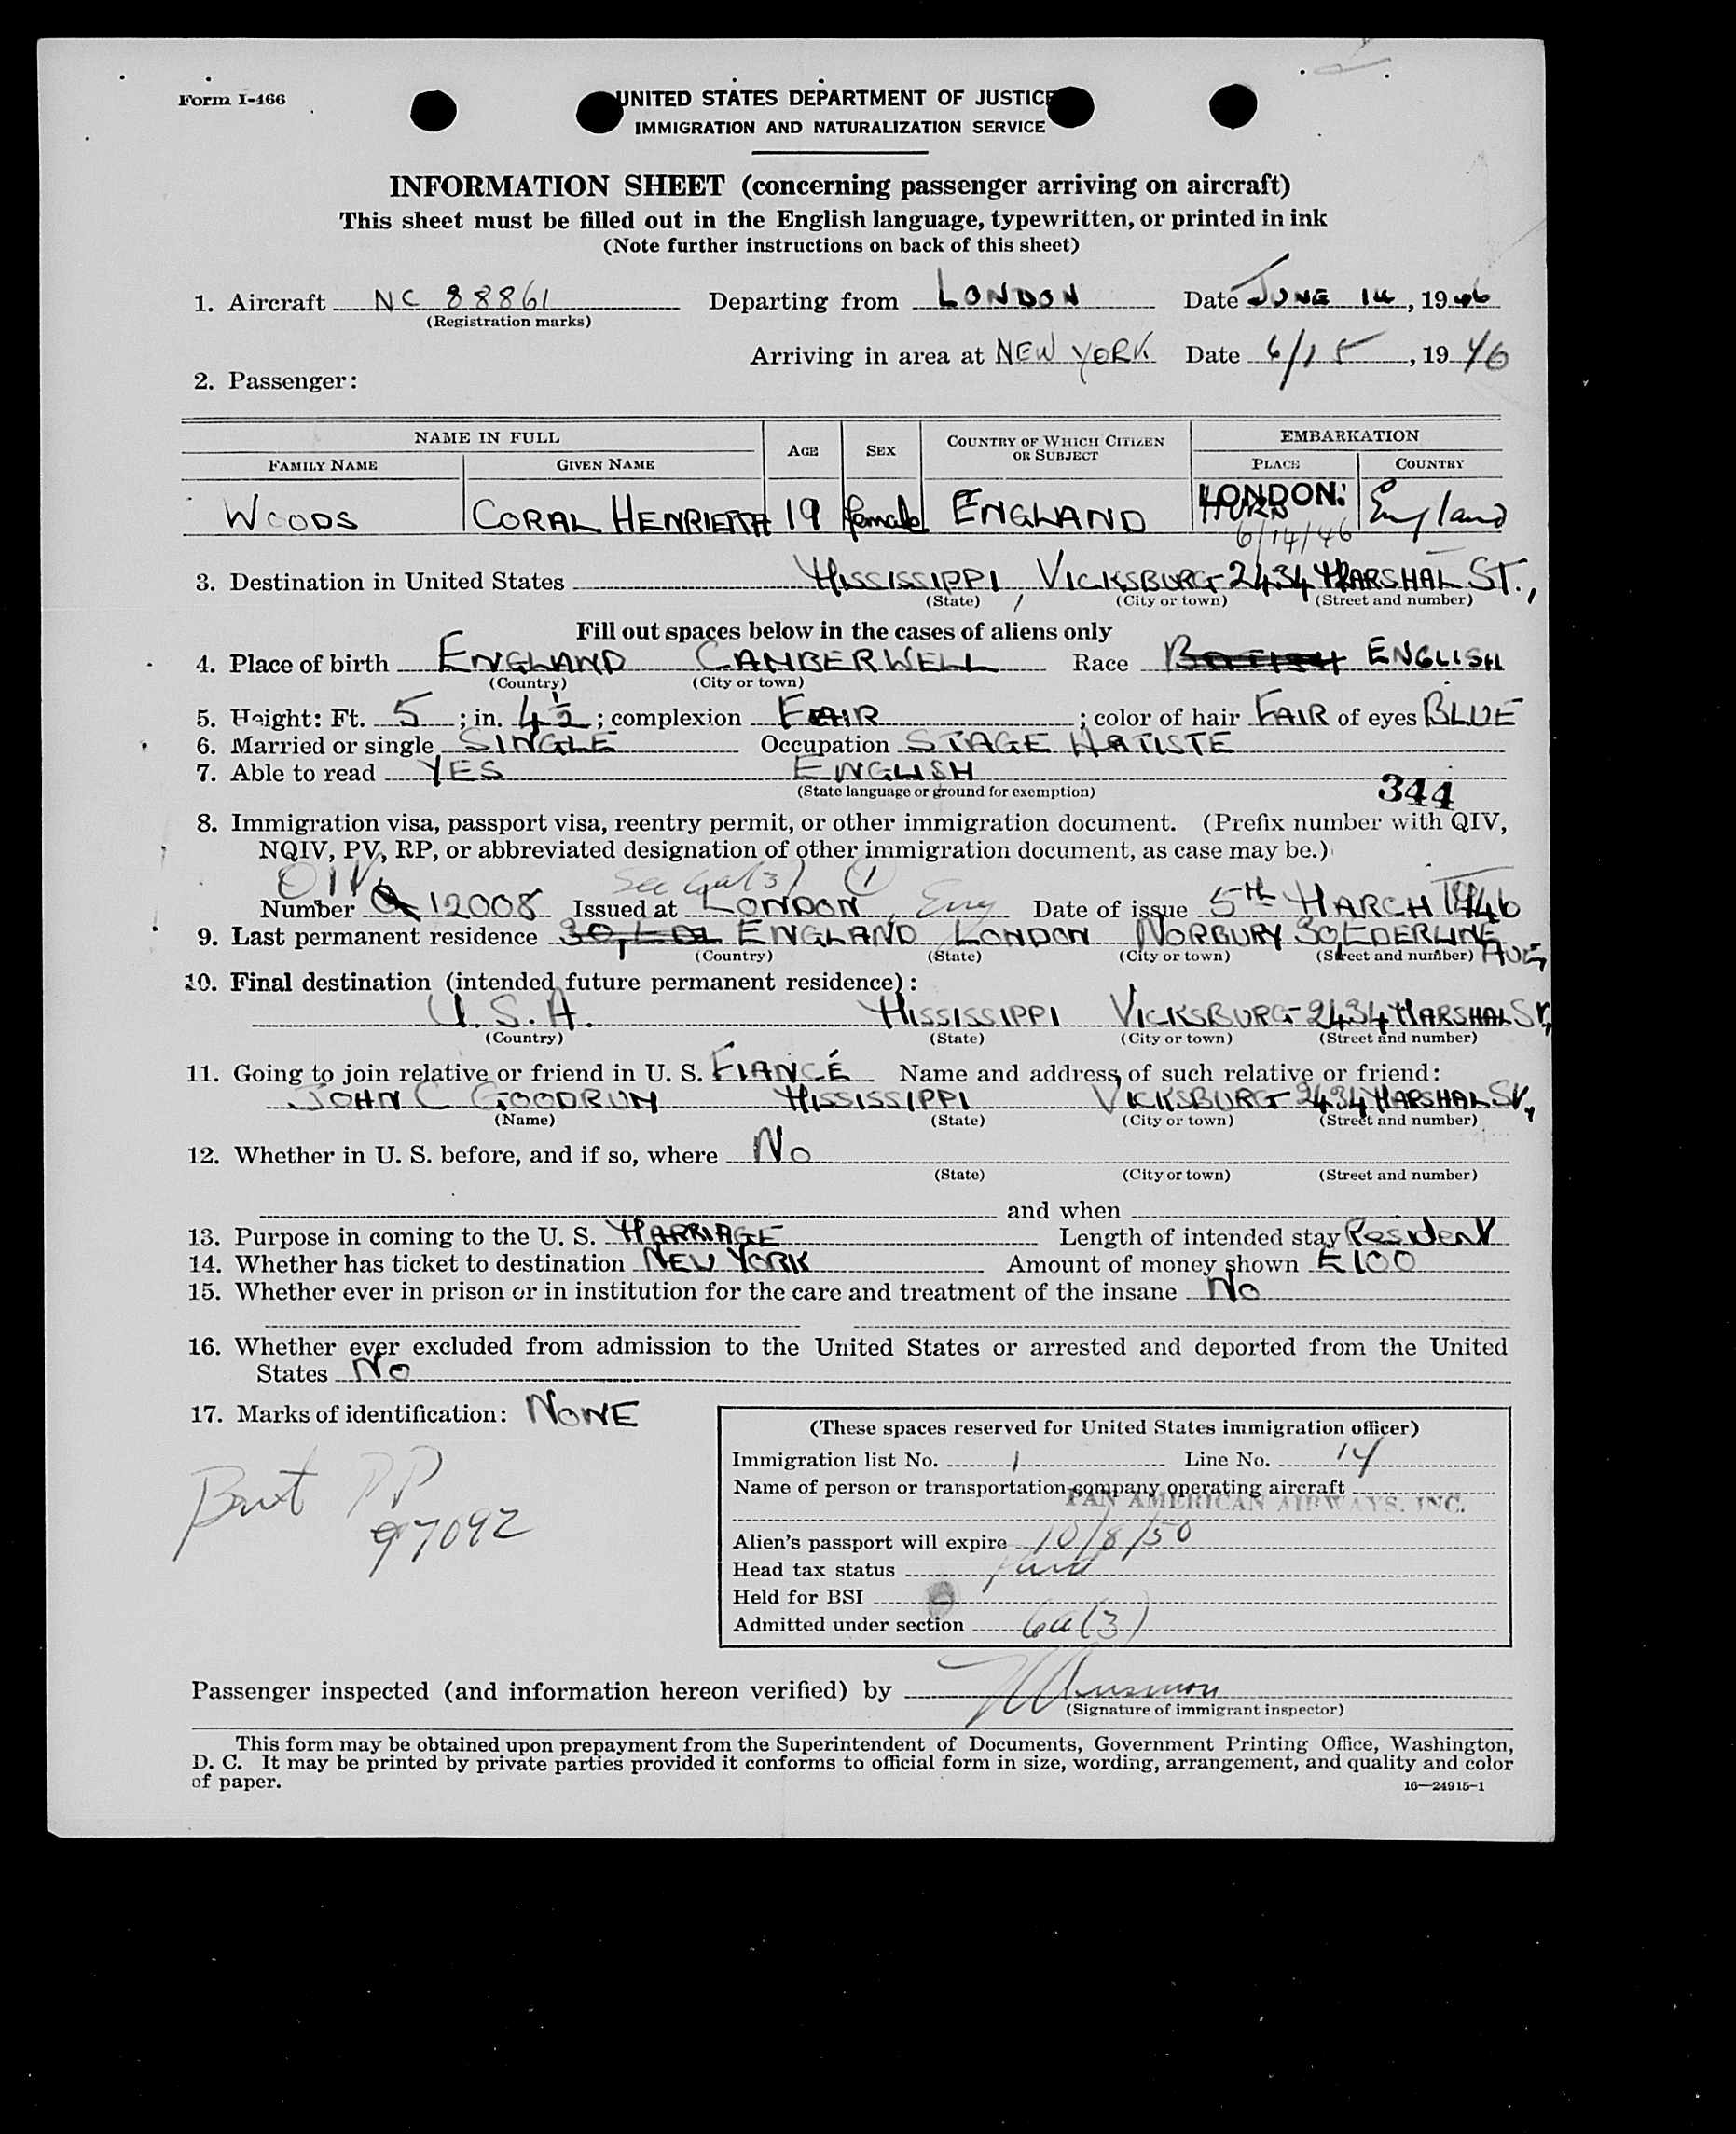 Form I-466
UNITED STATES DEPARTMENT OF JUSTICE
IMMIGRATION AND NATURALIZATION SERVICE
INFORMATION SHEET (concerning passenger arriving on aircraft)
This sheet must be filled out in the English language, typewritten, or printed in ink
(Note further instructions on back of this sheet)
1. Aircraft NC 88861 Departing from LONDON Date JUNE 14, 1946
(Registration marks)
Arriving in area at NEW YORK Date 6/15, 1946
2. Passenger:
NAME IN FULL AGE SEX COUNTRY OF WHICH CITIZEN OR SUBJECT EMBARKATION
FAMILY NAME GIVEN NAME PLACE COUNTRY
WOODS CORAL HENRIETTA 19 female ENGLAND LONDON. England
6/14/46
3. Destination in United States MISSISSIPPI, VICKSBURG 2434 MARSHAL ST.,
(State) (City or town) (Street and number)
Fill out spaces below in the cases of aliens only
4. Place of birth ENGLAND CAMBERWELL Race ENGLISH
(Country) (City or town)
5. Height: Ft. 5; in. 4½; complexion FAIR; color of hair FAIR of eyes BLUE
6. Married or single SINGLE Occupation STAGE ARTISTE
7. Able to read YES ENGLISH
(State language or ground for exemption)
344
8. Immigration visa, passport visa, reentry permit, or other immigration document. (Prefix number with QIV,
NQIV, PV, RP, or abbreviated designation of other immigration document, as case may be.)
QIV Sec 6a(3) 1
Number 12008 Issued at LONDON, Eng Date of issue 5th MARCH 1946
9. Last permanent residence ENGLAND LONDON NORBURY 30, EDERLINE AVE,
(Country) (State) (City or town) (Street and number)
10. Final destination (intended future permanent residence):
U.S.A. MISSISSIPPI VICKSBURG 2434 MARSHAL ST,
(Country) (State) (City or town) (Street and number)
11. Going to join relative or friend in U. S. FIANCÉ Name and address of such relative or friend:
JOHN C GOODRUM MISSISSIPPI VICKSBURG 2434 MARSHAL ST,
(Name) (State) (City or town) (Street and number)
12. Whether in U. S. before, and if so, where No
(State) (City or town) (Street and number)
and when
13. Purpose in coming to the U. S. MARRIAGE Length of intended stay ResidenT
14. Whether has ticket to destination NEW YORK Amount of money shown £100
15. Whether ever in prison or in institution for the care and treatment of the insane No
16. Whether ever excluded from admission to the United States or arrested and deported from the United
States No
17. Marks of identification: NONE
Brit PP
97092
(These spaces reserved for United States immigration officer)
Immigration list No. 1 Line No. 14
Name of person or transportation company operating aircraft
PAN AMERICAN AIRWAYS, INC.
Alien's passport will expire 10/8/50
Head tax status Paid
Held for BSI
Admitted under section 6a(3)
Passenger inspected (and information hereon verified) by
(Signature of immigrant inspector)
This form may be obtained upon prepayment from the Superintendent of Documents, Government Printing Office, Washington,
D. C. It may be printed by private parties provided it conforms to official form in size, wording, arrangement, and quality and color
of paper.
16—24915-1